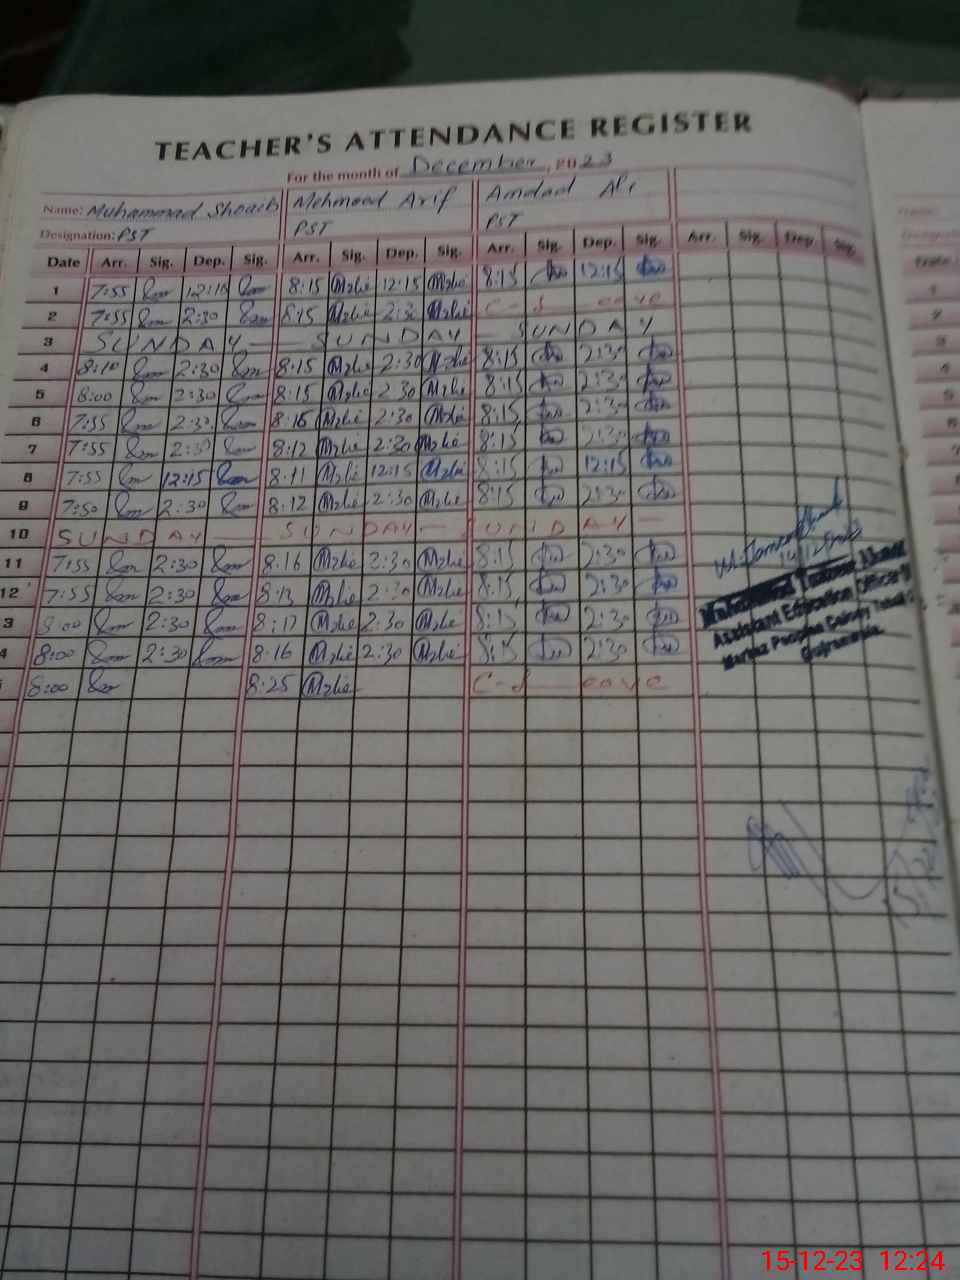 TEACHER'S ATTENDANCE REGISTER
For the month of December, 2023
Name: Muhammad Shoaib Mehmood Arif Amdad Ali
Designation: PST PST PST
Date Arr. Sig. Dep. Sig. Arr. Sig. Dep. Sig. Arr. Sig. Dep. Sig. Arr. Sig. Dep. Sig.
1 7:55 12:10 8:15 12:15 8:15 12:15
2 7:55 2:30 8:15 2:30 C-Leave
3 SUNDAY SUNDAY SUNDAY
4 8:10 2:30 8:15 2:30 8:15 2:30
5 8:00 2:30 8:15 2:30 8:15 2:30
6 7:55 2:30 8:16 2:30 8:15 2:30
7 7:55 2:30 8:12 2:30 8:15 2:30
8 7:55 12:15 8:11 12:15 8:15 12:15
9 7:50 2:30 8:12 2:30 8:15 2:30
10 SUNDAY SUNDAY SUNDAY
11 7:55 2:30 8:16 2:30 8:15 2:30
12 7:55 2:30 8:13 2:30 8:15 2:30
3 8:00 2:30 8:17 2:30 8:15 2:30
4 8:00 2:30 8:16 2:30 8:15 2:30
8:00 8:25 C-Leave
Muhammad
Assistant Education Officer
Markaz Peoples Colony
Gujranwala.
15-12-23 12:24